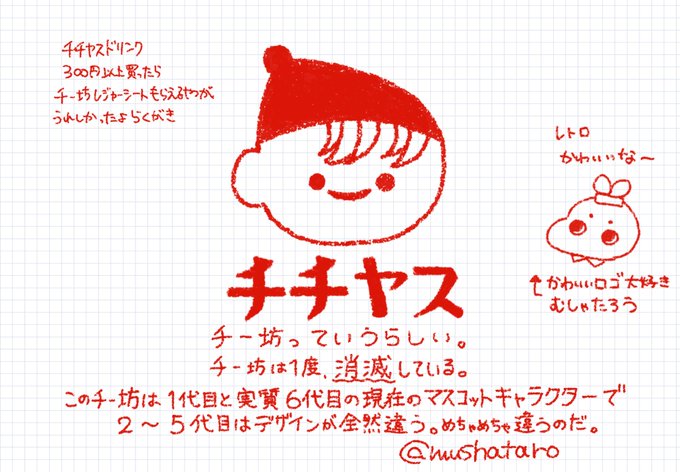 チチヤスドリンク
300円以上買ったら
チー坊レジャーシートもらえるやつが、
うれしかったよらくがき
レトロ
かわいいな〜
チチヤス
↑かわいいロゴ大好き
むしゃたろう
チー坊っていうらしい。
チー坊は1度、消滅している。
このチー坊は1代目と実質6代目の現在のマスコットキャラクターで
2〜5代目はデザインが全然違う。めちゃめちゃ違うのだ。
@mushataro